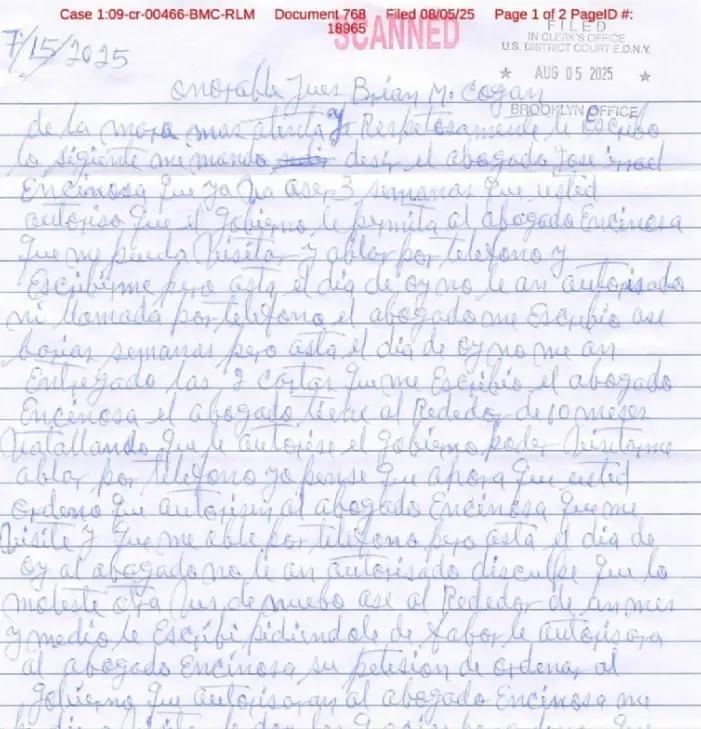 Case 1:09-cr-00466-BMC-RLM Document 768 Filed 08/05/25 Page 1 of 2 PageID #: 18965
SCANNED
FILED
IN CLERK'S OFFICE
U.S. DISTRICT COURT E.D.N.Y.
★ AUG 05 2025 ★
BROOKLYN OFFICE
7/15/2025
onorable Jues Brian M. Cogan
de la mara mas atenta y Respetosamente le Escribo
lo sigiente me mando desir el abogado Jose
Encinosa que ya ba aser 3 semanas que usted
autoriso que el gobierno le permita al abogado Encinosa
que me pueda Visitar y ablar por telefono y
Escribirme pero asta el dia de oy no le an autorisado
ni llamada por telefono el abogado me Escribio ase
barias semanas pero asta el dia de oy no me an
Entregado las 2 cartas que me Escribio el abogado
Encinosa el abogado tiene al Rededor de 10 meses
batallando que le autorise el gobierno poder Visitarme
ablar por telefono yo pense que ahora que usted
ordeno que autorisen al abogado Encinosa que me
Visite y que me able por telefono pero asta el dia de
oy al abogado no le an autorisado disculpe que lo
moleste otra Vus de nuebo ase al Rededor de un mes
y medio le Escribi pidiendole de fabor le autorisara
al abogado Encinosa su petision de ordenar al
gobierno que autorisaran al abogado Encinosa me